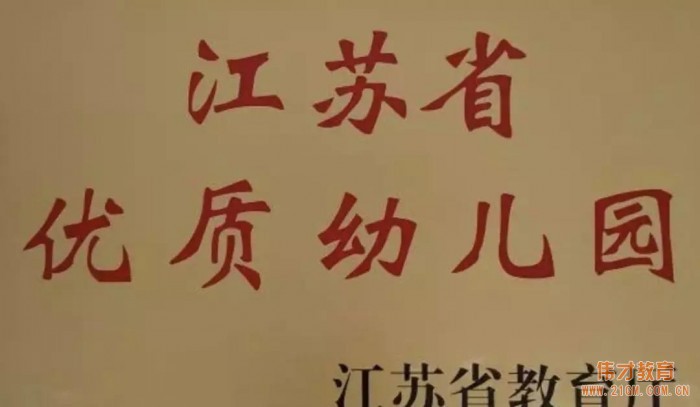 江苏省
优质幼儿园
江苏省教育厅
伟才教育
WWW.21GM.COM.CN